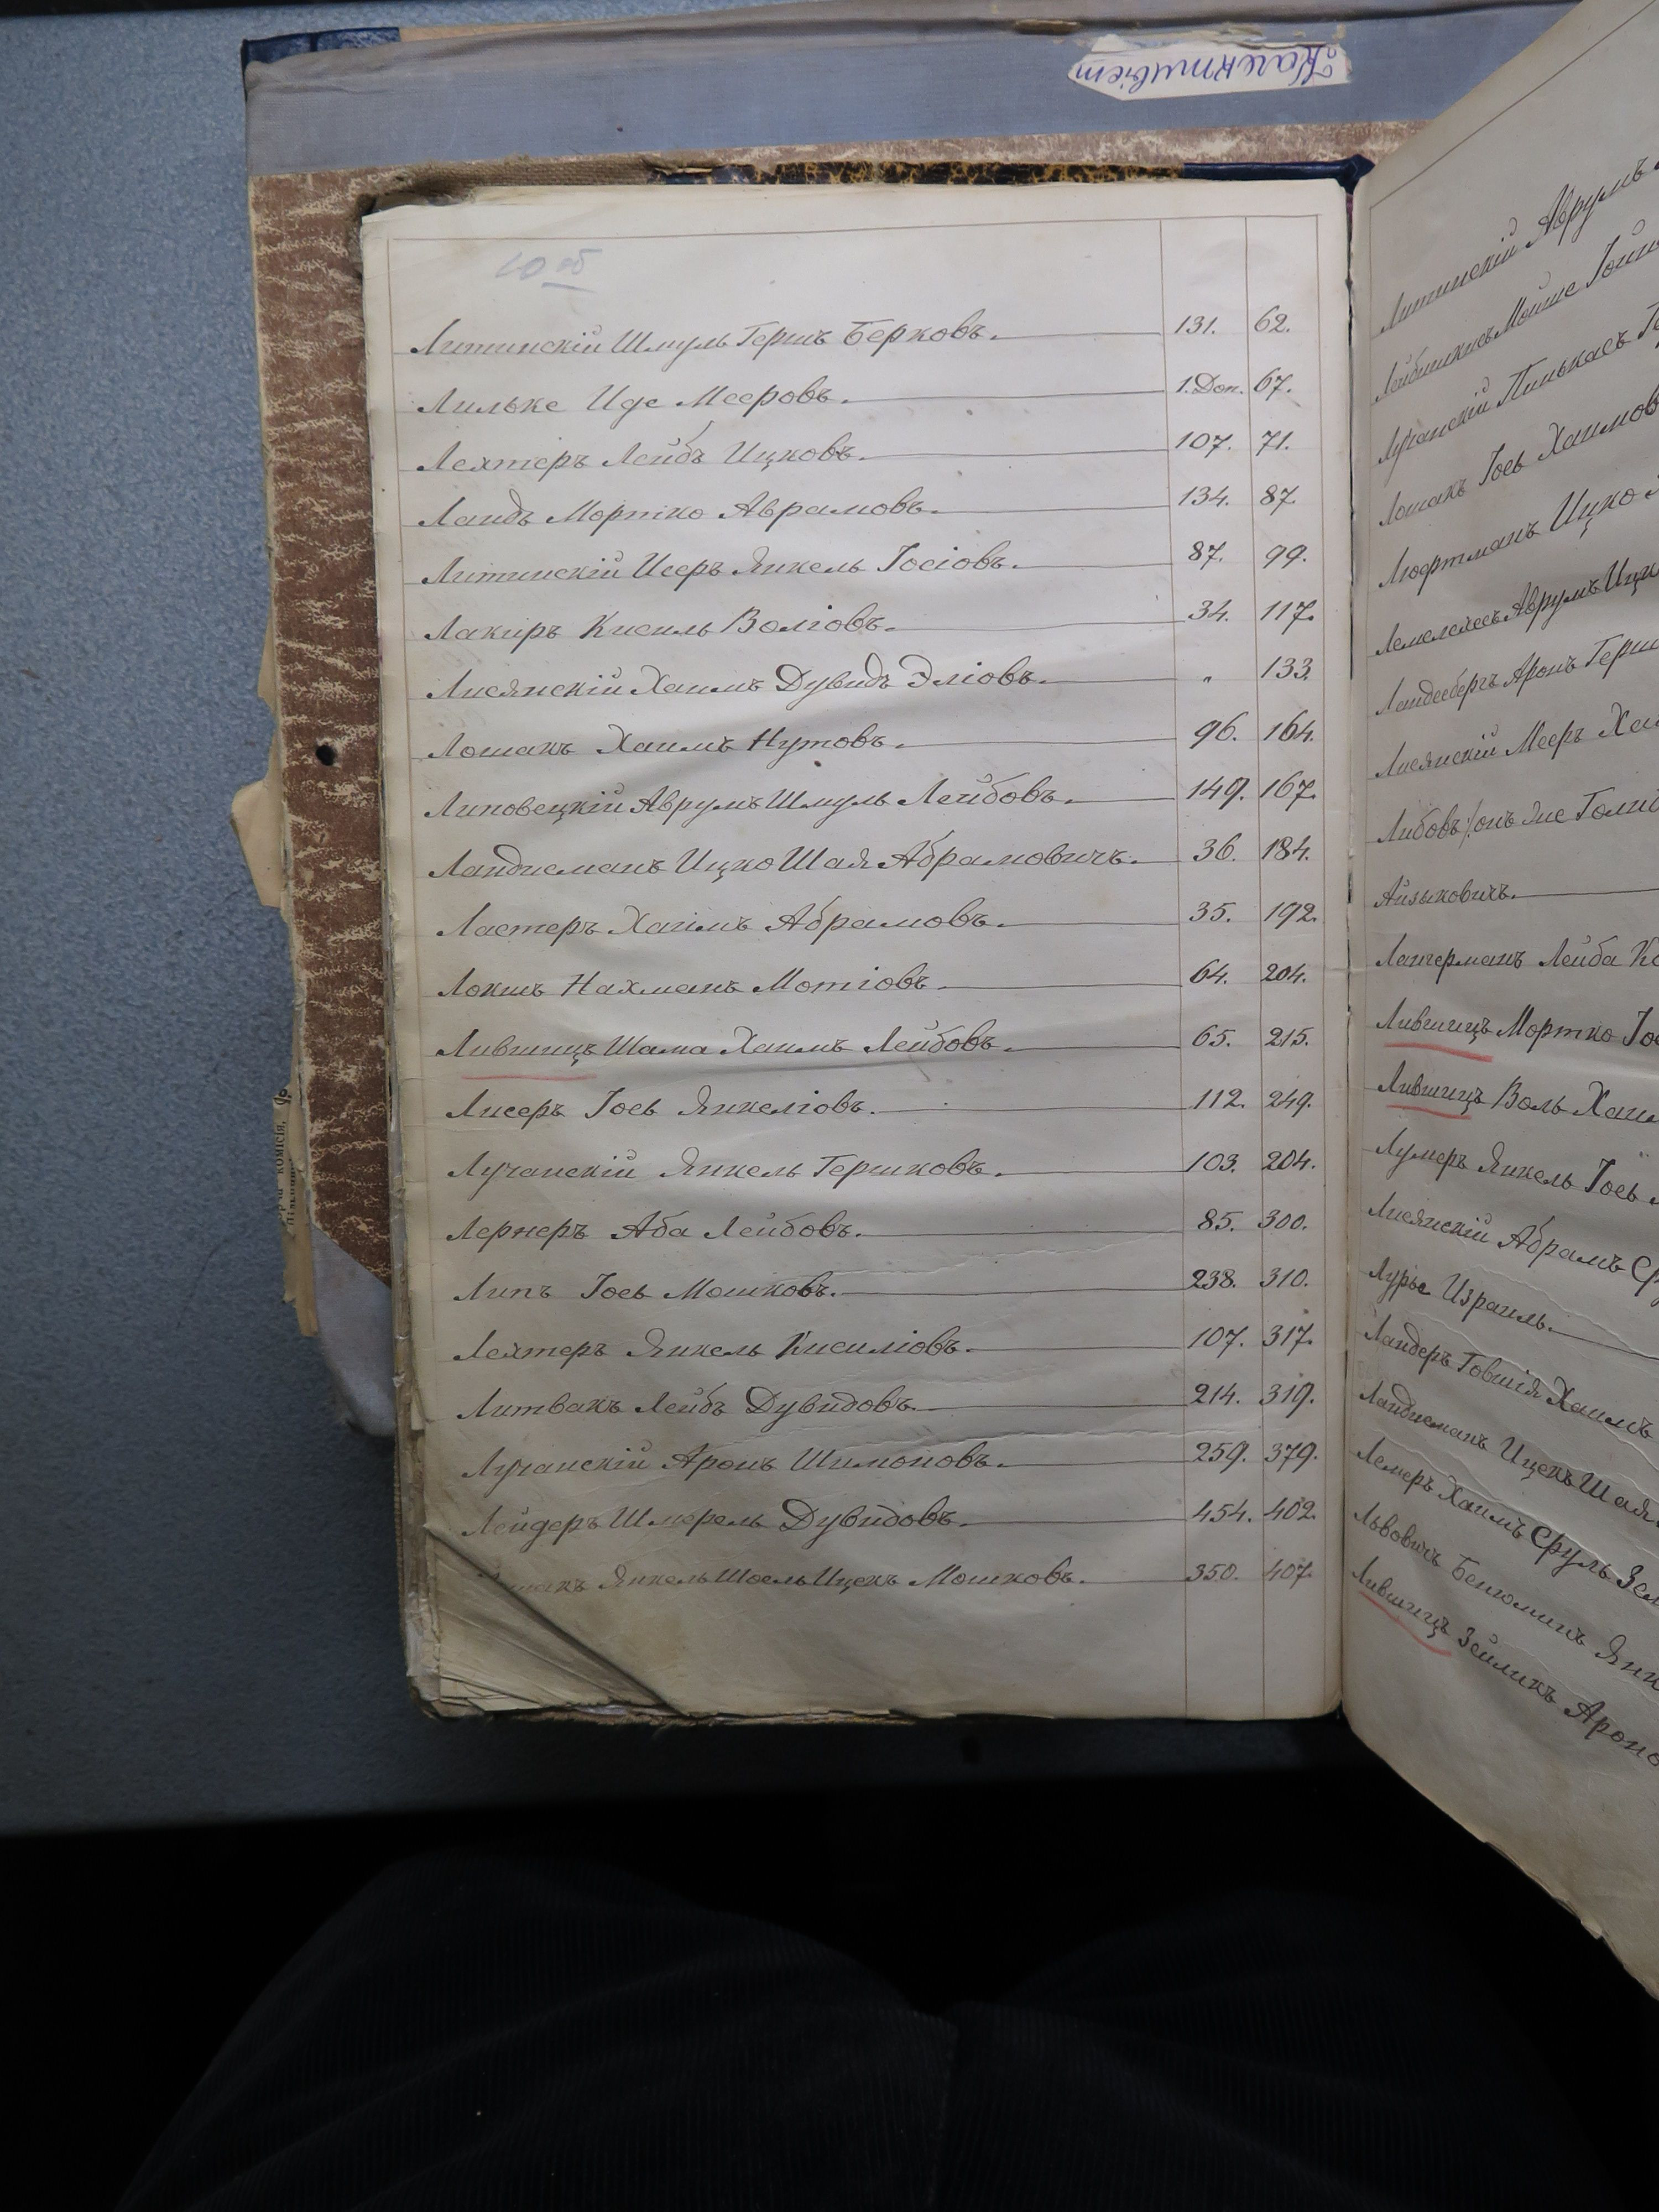 10 об
Литинскій Шмуль Гершъ Берковъ. 131. 62.
Лильке Иде Мееровъ. 1. Доп. 67.
Лехтеръ Лейбъ Ицковъ. 107. 71.
Ландъ Мортко Аврамовъ. 134. 87.
Литинскій Исеръ Янкель Іосіовъ. 87. 99.
Лакиръ Кисиль Воліовъ. 34. 117.
Лисянскій Хаимъ Дувидъ Эліовъ. „ 133.
Лошакъ Хаимъ Нутовъ. 96. 164.
Липовецкій Аврумъ Шмуль Лейбовъ. 149. 167.
Ландисманъ Ицко Шая Абрамовичъ. 36. 184.
Ластеръ Хаимъ Абрамовъ. 35. 192.
Локшъ Нахманъ Мотіовъ. 64. 204.
Лившицъ Шама Хаимъ Лейбовъ. 65. 215.
Лисеръ Іось Янкеліовъ. 112. 249.
Лучанскій Янкель Гершковъ. 103. 204.
Лернеръ Аба Лейбовъ. 85. 300.
Липъ Іось Мошковъ. 238. 310.
Лехтеръ Янкель Кисиліовъ. 107. 317.
Литвакъ Лейбъ Дувидовъ. 214. 319.
Лучанскій Аронъ Шимоновъ. 259. 379.
Лейдеръ Шмерель Дувидовъ. 454. 402.
Янкель Шоель Ицекъ Мошковъ. 350. 407.
Литинскій Аврумъ
Лейбишкисъ Моише
Лучанскій Пинькасъ
Лошакъ Іось Хаимов
Люфтманъ Ицко
Лемелехесъ Аврумъ Ицк
Ландесбергъ Аронъ Герш
Лисянскій Мееръ Ха
Либовъ /онъ же
Айзыковичъ.
Лангерманъ Лейба
Лившицъ Мортко Іо
Лившицъ Воль Хаи
Лумеръ Янкель Іось
Лисянскій Абрамъ Ср
Лурье Израиль.
Ландеръ Говшія Хаимъ
Ландисманъ Ицекъ Шая
Лемеръ Хаимъ Сруль Зел
Львовичъ Беніоминъ Янк
Лившицъ Зейликъ Ароно
комісія,